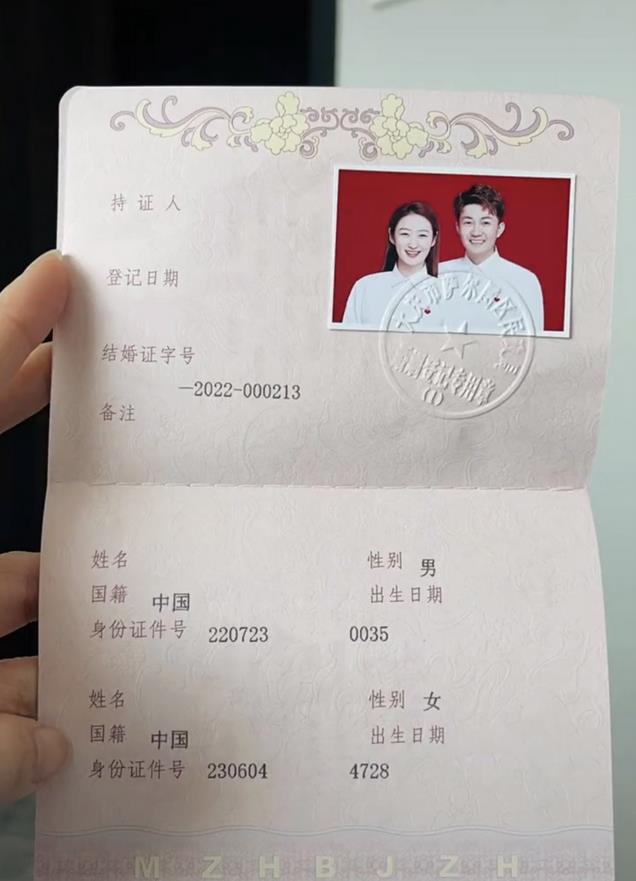 持证人
登记日期
结婚证字号
—2022-000213
备注
姓名 性别 男
国籍 中国 出生日期
身份证件号 220723 0035
姓名 性别 女
国籍 中国 出生日期
身份证件号 230604 4728
MZHBJZH